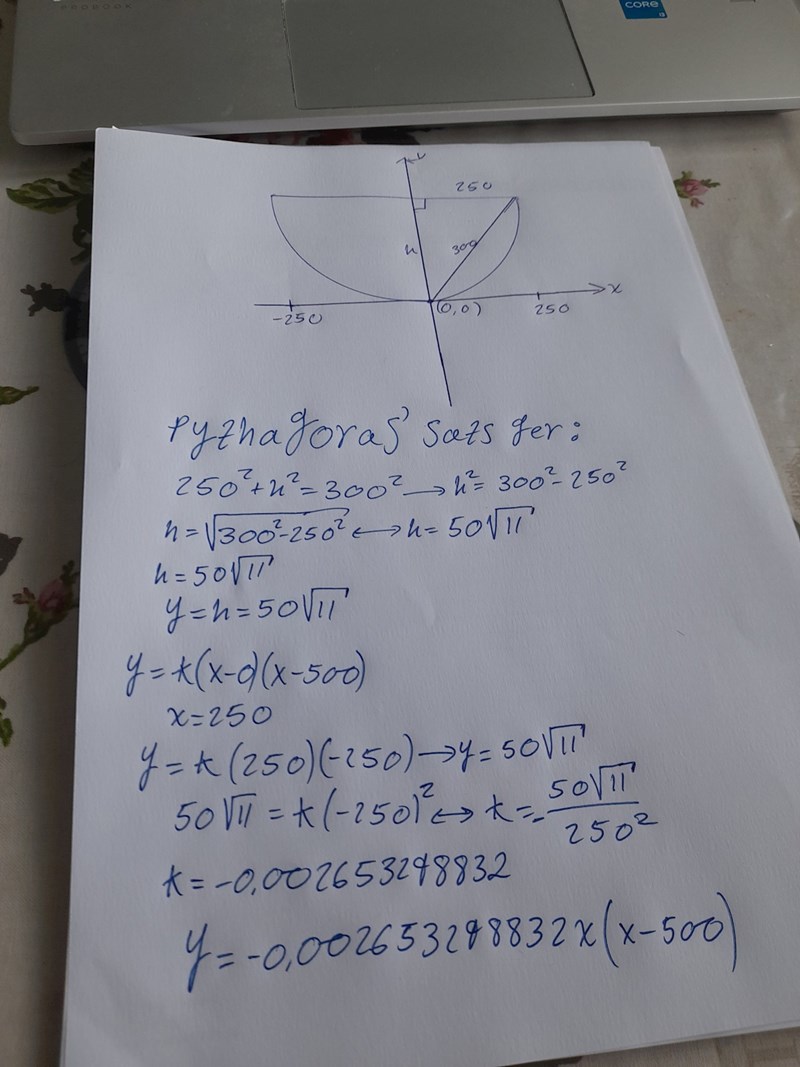 PROBOOK
CORE
i3
y
250
h
300
x
-250
(0,0)
250
Pythagoras' Sats ger:
250²+h²=300² → h²= 300²-250²
h=√300²-250² ↔ h=50√11
h=50√11
y=h=50√11
y=k(x-0)(x-500)
x=250
y=k(250)(-250)→y=50√11
50√11 = k(-250)² ↔ k=-50√11/250²
k=-0,002653298832
y=-0,002653298832x(x-500)